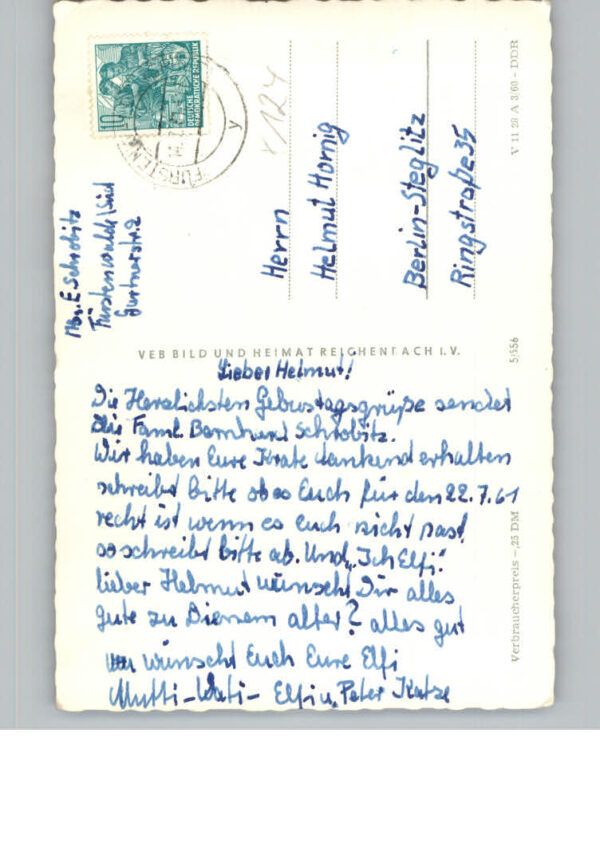 10
DEUTSCHE
DEMOKRATISCHE REPUBLIK
FÜRSTENW
y
124
Herrn
Helmut Hornig
Berlin-Steglitz
Ringstraße 35
V 11 28 A 3/60 - DDR
Abs. E. Schrobitz
Fürstenwalde/Süd
Gartnerstr. 2
VEB BILD UND HEIMAT REICHENBACH I.V.
5/556
Verbraucherpreis -,25 DM
Lieber Helmut!
Die Herzlichsten Gebustagsgrüße sendet
Die Faml. Bernhard Schrobitz.
Wir haben Eure Krate dankend erhalten
schreibt bitte ob es Euch für den 22.7.61
recht ist wenn es euch nicht past
so schreibt bitte ab. Und "Ich Elfi"
lieber Helmut wünscht Dir alles
gute zu Dienem alter? alles gut
wünscht Euch Eure Elfi
Mutti - Vati - Elfi u. Peter Katze